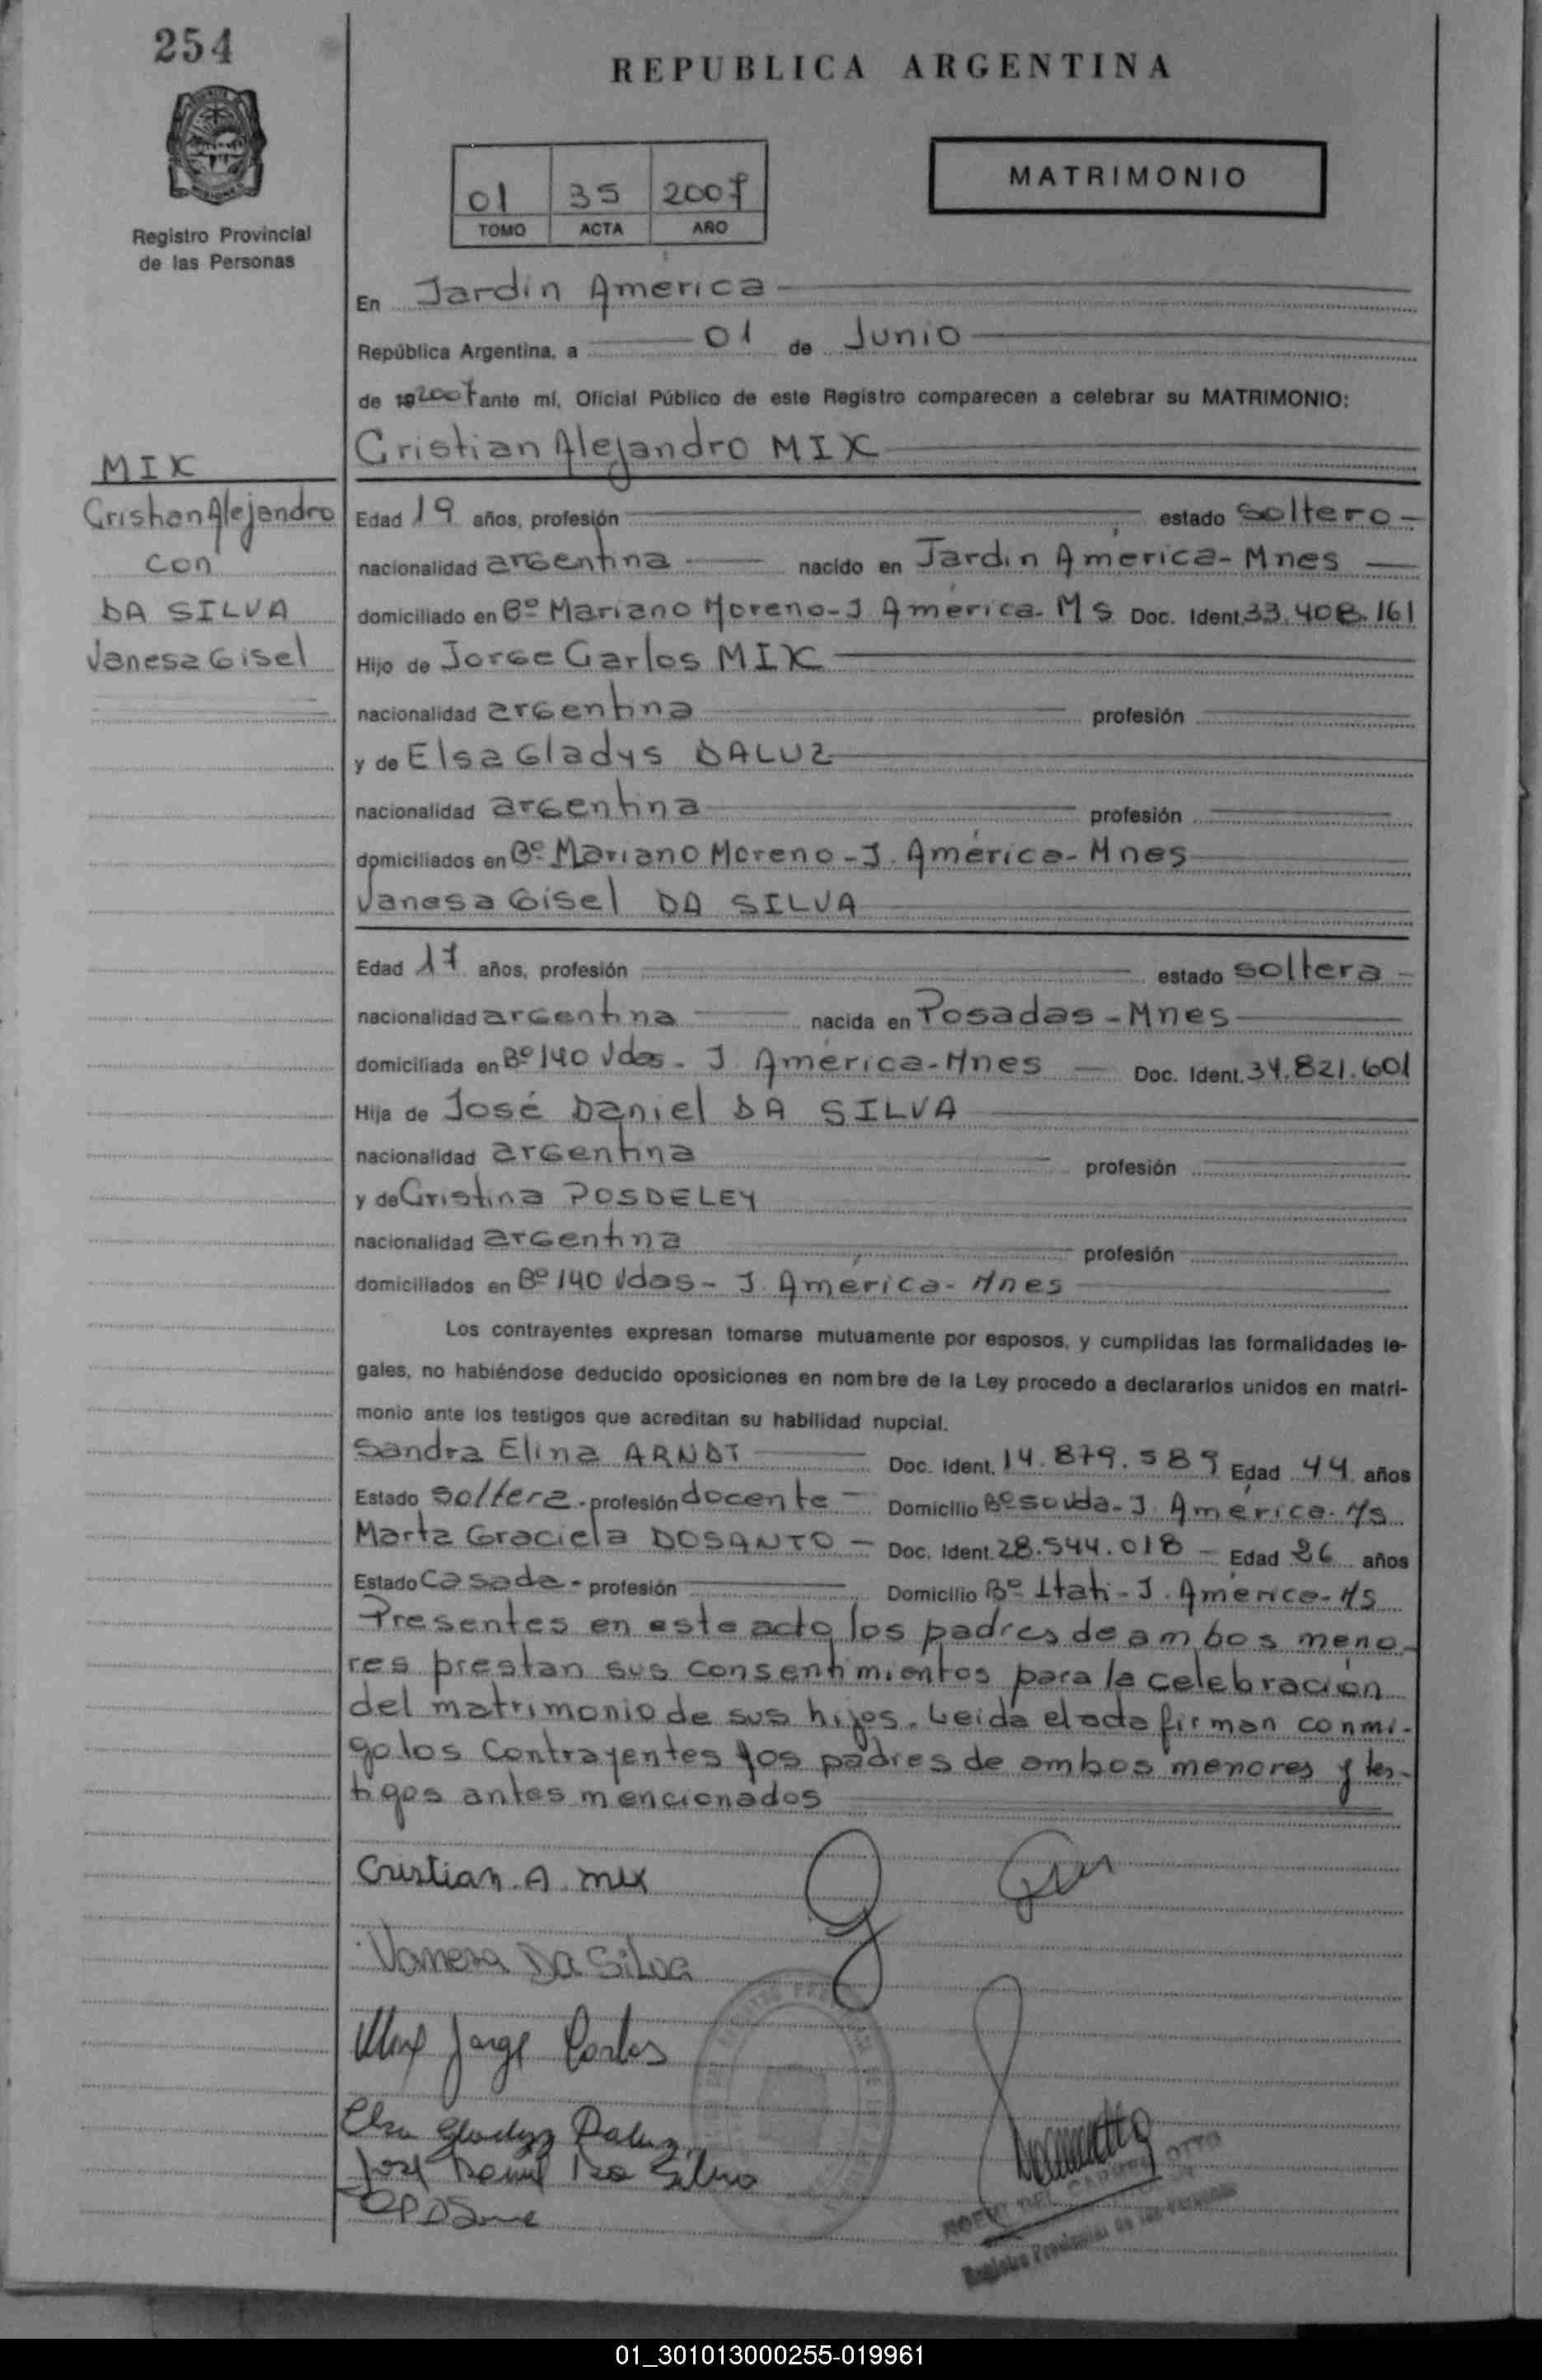 254
REPUBLICA ARGENTINA
Registro Provincial
de las Personas
01 35 2007
TOMO ACTA AÑO
MATRIMONIO
En Jardin America
República Argentina, a 01 de Junio
de 19 2007 ante mí, Oficial Público de este Registro comparecen a celebrar su MATRIMONIO:
Cristian Alejandro MIX
MIX
Cristian Alejandro
con
DA SILVA
Vanesa Gisel
Edad 19 años, profesión estado soltero
nacionalidad argentina nacido en Jardin América - Mnes
domiciliado en Bº Mariano Moreno - J. América - MS Doc. Ident. 33.408.161
Hijo de Jorge Carlos MIX
nacionalidad argentina profesión
y de Elsa Gladys DALUZ
nacionalidad argentina profesión
domiciliados en Bº Mariano Moreno - J. América - Mnes
Vanesa Gisel DA SILVA
Edad 17 años, profesión estado soltera
nacionalidad argentina nacida en Posadas - Mnes
domiciliada en Bº 140 Vdas - J. América - Mnes Doc. Ident. 34.821.601
Hija de José Daniel DA SILVA
nacionalidad argentina profesión
y de Cristina POSDELEY
nacionalidad argentina profesión
domiciliados en Bº 140 Vdas - J. América - Mnes
Los contrayentes expresan tomarse mutuamente por esposos, y cumplidas las formalidades le-
gales, no habiéndose deducido oposiciones en nombre de la Ley procedo a declararlos unidos en matri-
monio ante los testigos que acreditan su habilidad nupcial.
Sandra Elina ARNDT Doc. Ident. 14.879.589 Edad 44 años
Estado soltera - profesión docente - Domicilio Bº J. América - Ms
Marta Graciela DOSANTO - Doc. Ident. 28.544.018 - Edad 26 años
Estado Casada - profesión Domicilio Bº Itatí - J. América - Ms
Presentes en este acto los padres de ambos meno-
res prestan sus consentimientos para la celebración
del matrimonio de sus hijos. Leida el acta firman conmi-
go los contrayentes los padres de ambos menores y tes-
tigos antes mencionados
Cristian. A. mix
Vanesa Da Silva
Mix Jorge Carlos
Elsa Gladyz Daluz
José Daniel Da Silva
OTTO
Registro Provincial de las Personas
01_301013000255-019961